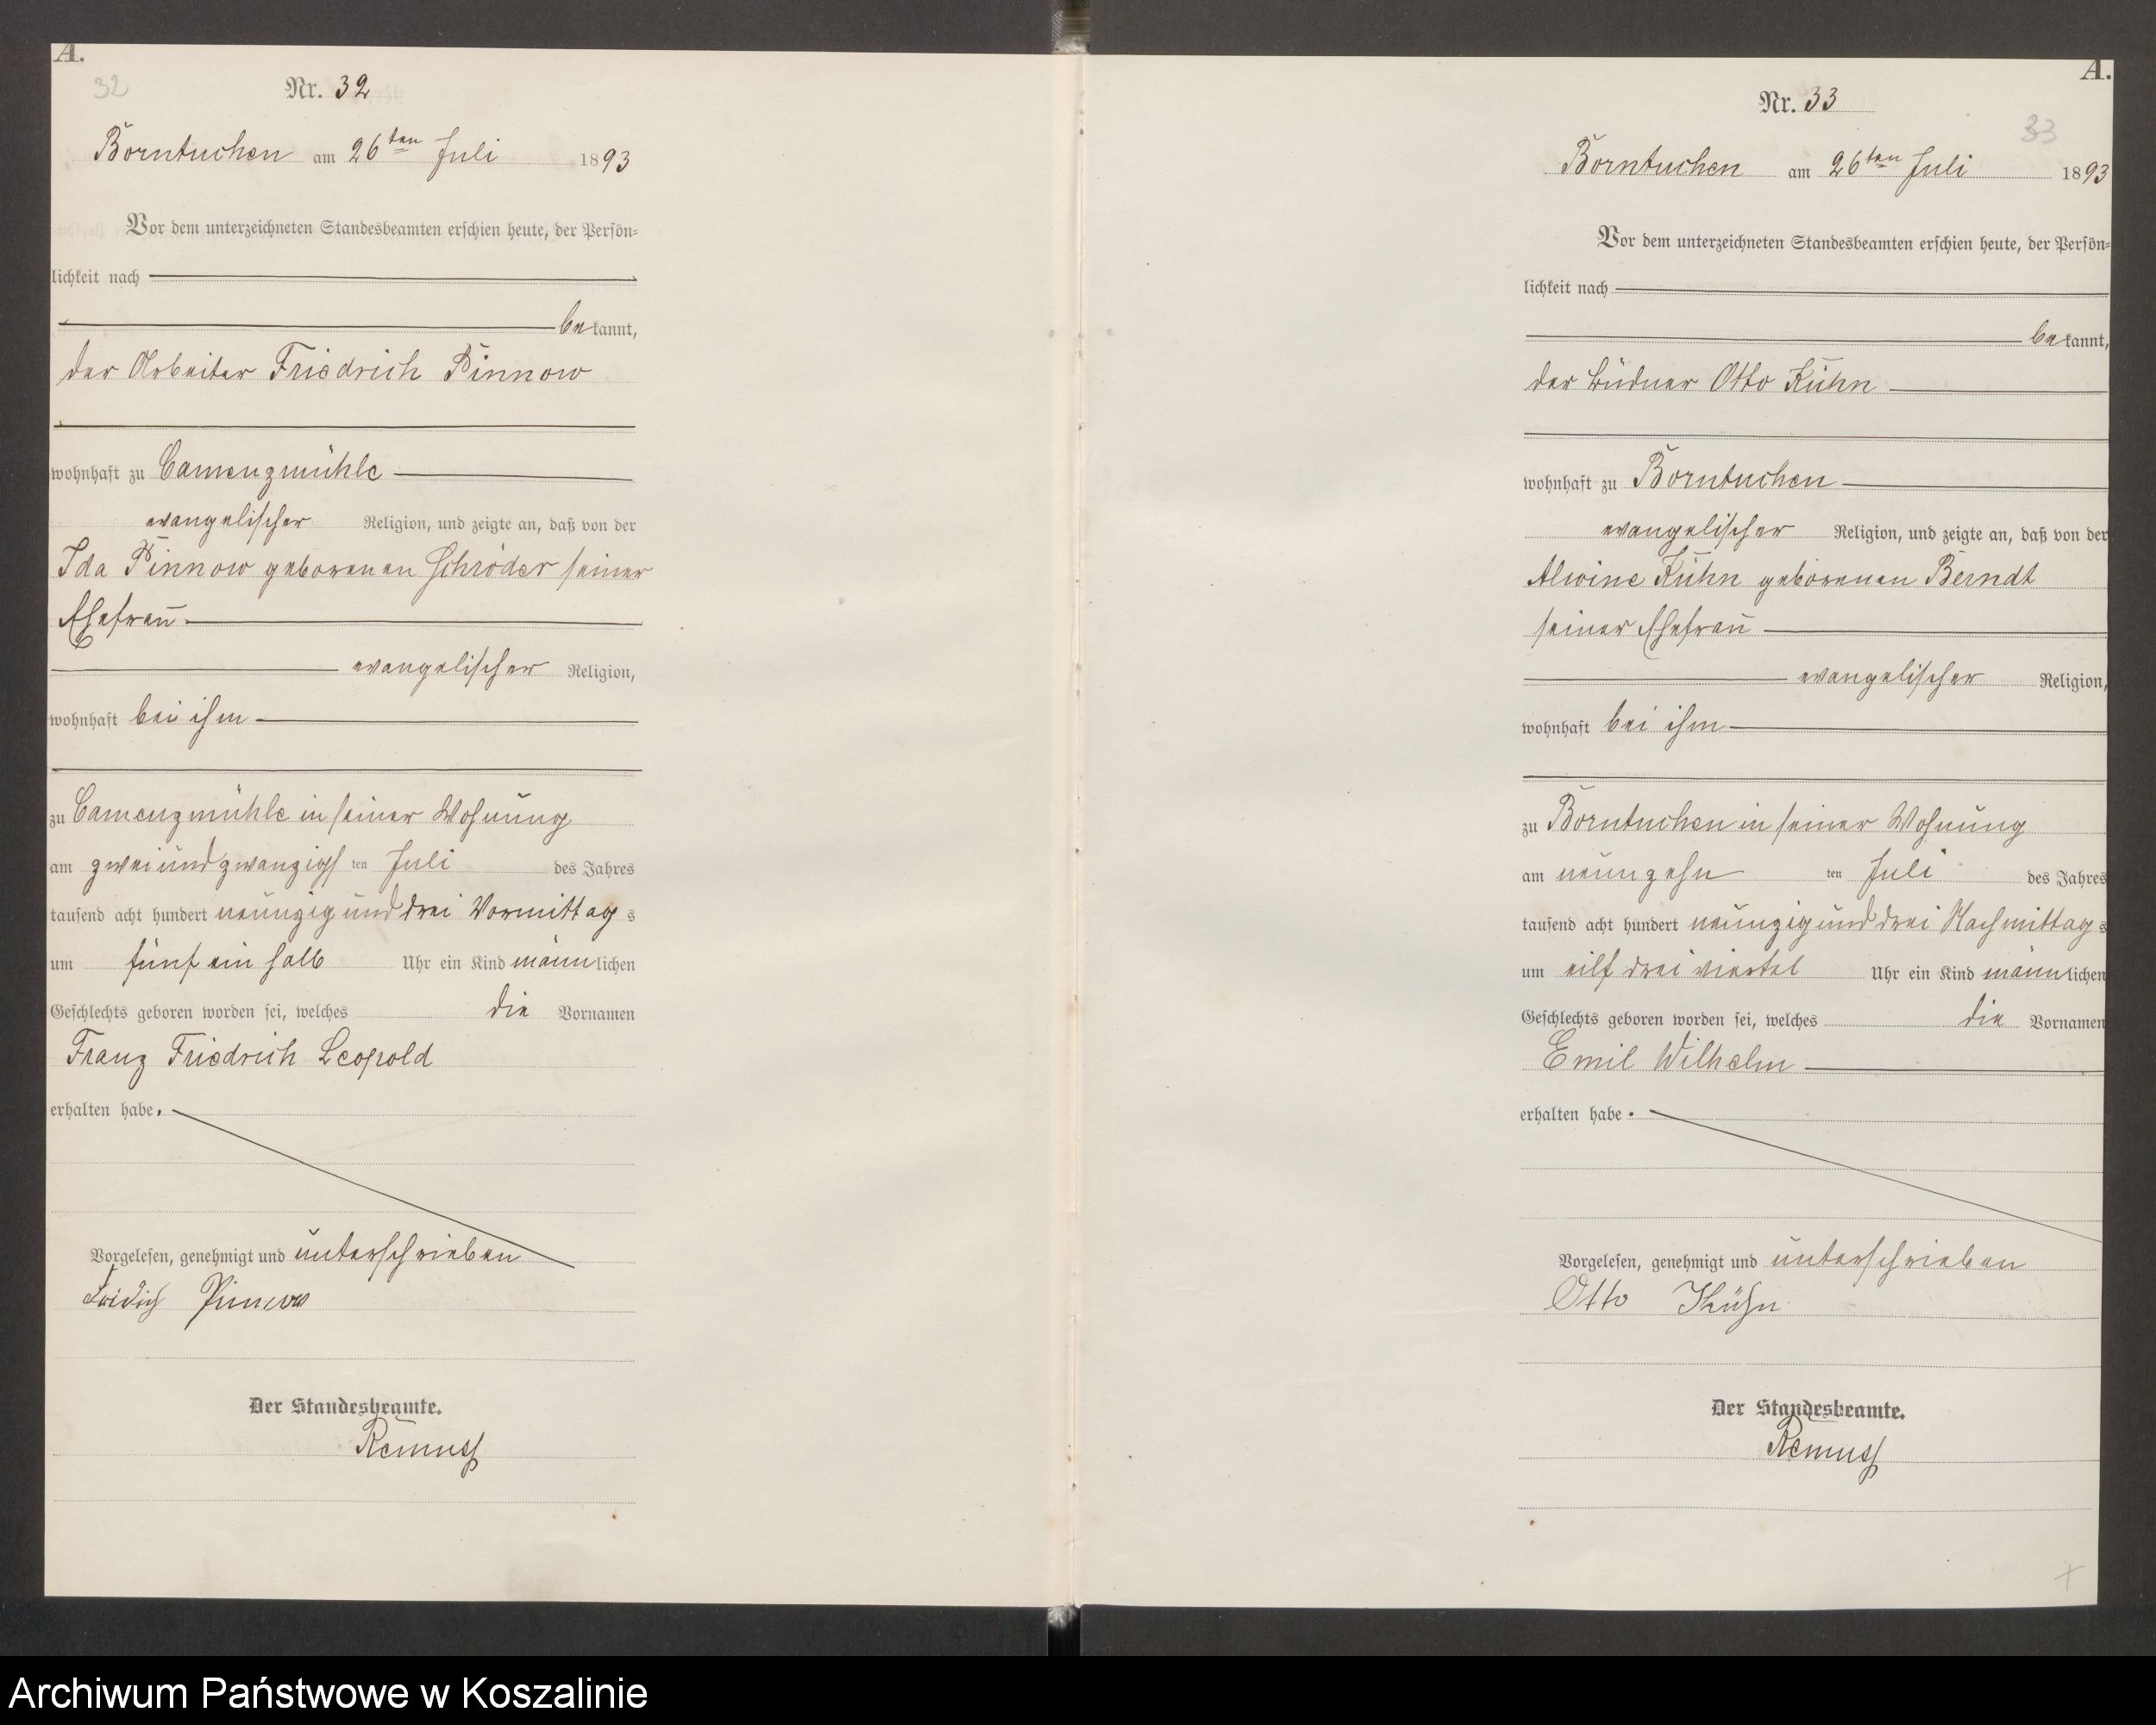 A.
32
Nr. 32
Borntuchen am 26ten Juli 1893
Vor dem unterzeichneten Standesbeamten erschien heute, der Persön-
lichkeit nach
bekannt,
der Arbeiter Friedrich Pinnow
wohnhaft zu Camenzmühle
evangelischer Religion, und zeigte an, daß von der
Ida Pinnow geborenen Schröder seiner
Ehefrau
evangelischer Religion,
wohnhaft bei ihm
zu Camenzmühle in seiner Wohnung
am zweiundzwanzigsten Juli des Jahres
tausend acht hundert neunzig und drei Vormittags
um fünf ein halb Uhr ein Kind männlichen
Geschlechts geboren worden sei, welches die Vornamen
Franz Friedrich Leopold
erhalten habe.
Vorgelesen, genehmigt und unterschrieben
Fridich Pinnow
Der Standesbeamte.
Remuss
A.
Nr. 33
33
Borntuchen am 26ten Juli 1893
Vor dem unterzeichneten Standesbeamten erschien heute, der Persön-
lichkeit nach
bekannt,
der Büdner Otto Kühn
wohnhaft zu Borntuchen
evangelischer Religion, und zeigte an, daß von der
Alwine Kühn geborenen Berndt
seiner Ehefrau
evangelischer Religion,
wohnhaft bei ihm
zu Borntuchen in seiner Wohnung
am neunzehnten Juli des Jahres
tausend acht hundert neunzig und drei Nachmittags
um eilf drei viertel Uhr ein Kind männlichen
Geschlechts geboren worden sei, welches die Vornamen
Emil Wilhelm
erhalten habe.
Vorgelesen, genehmigt und unterschrieben
Otto Kühn
Der Standesbeamte.
Remuss
Archiwum Państwowe w Koszalinie